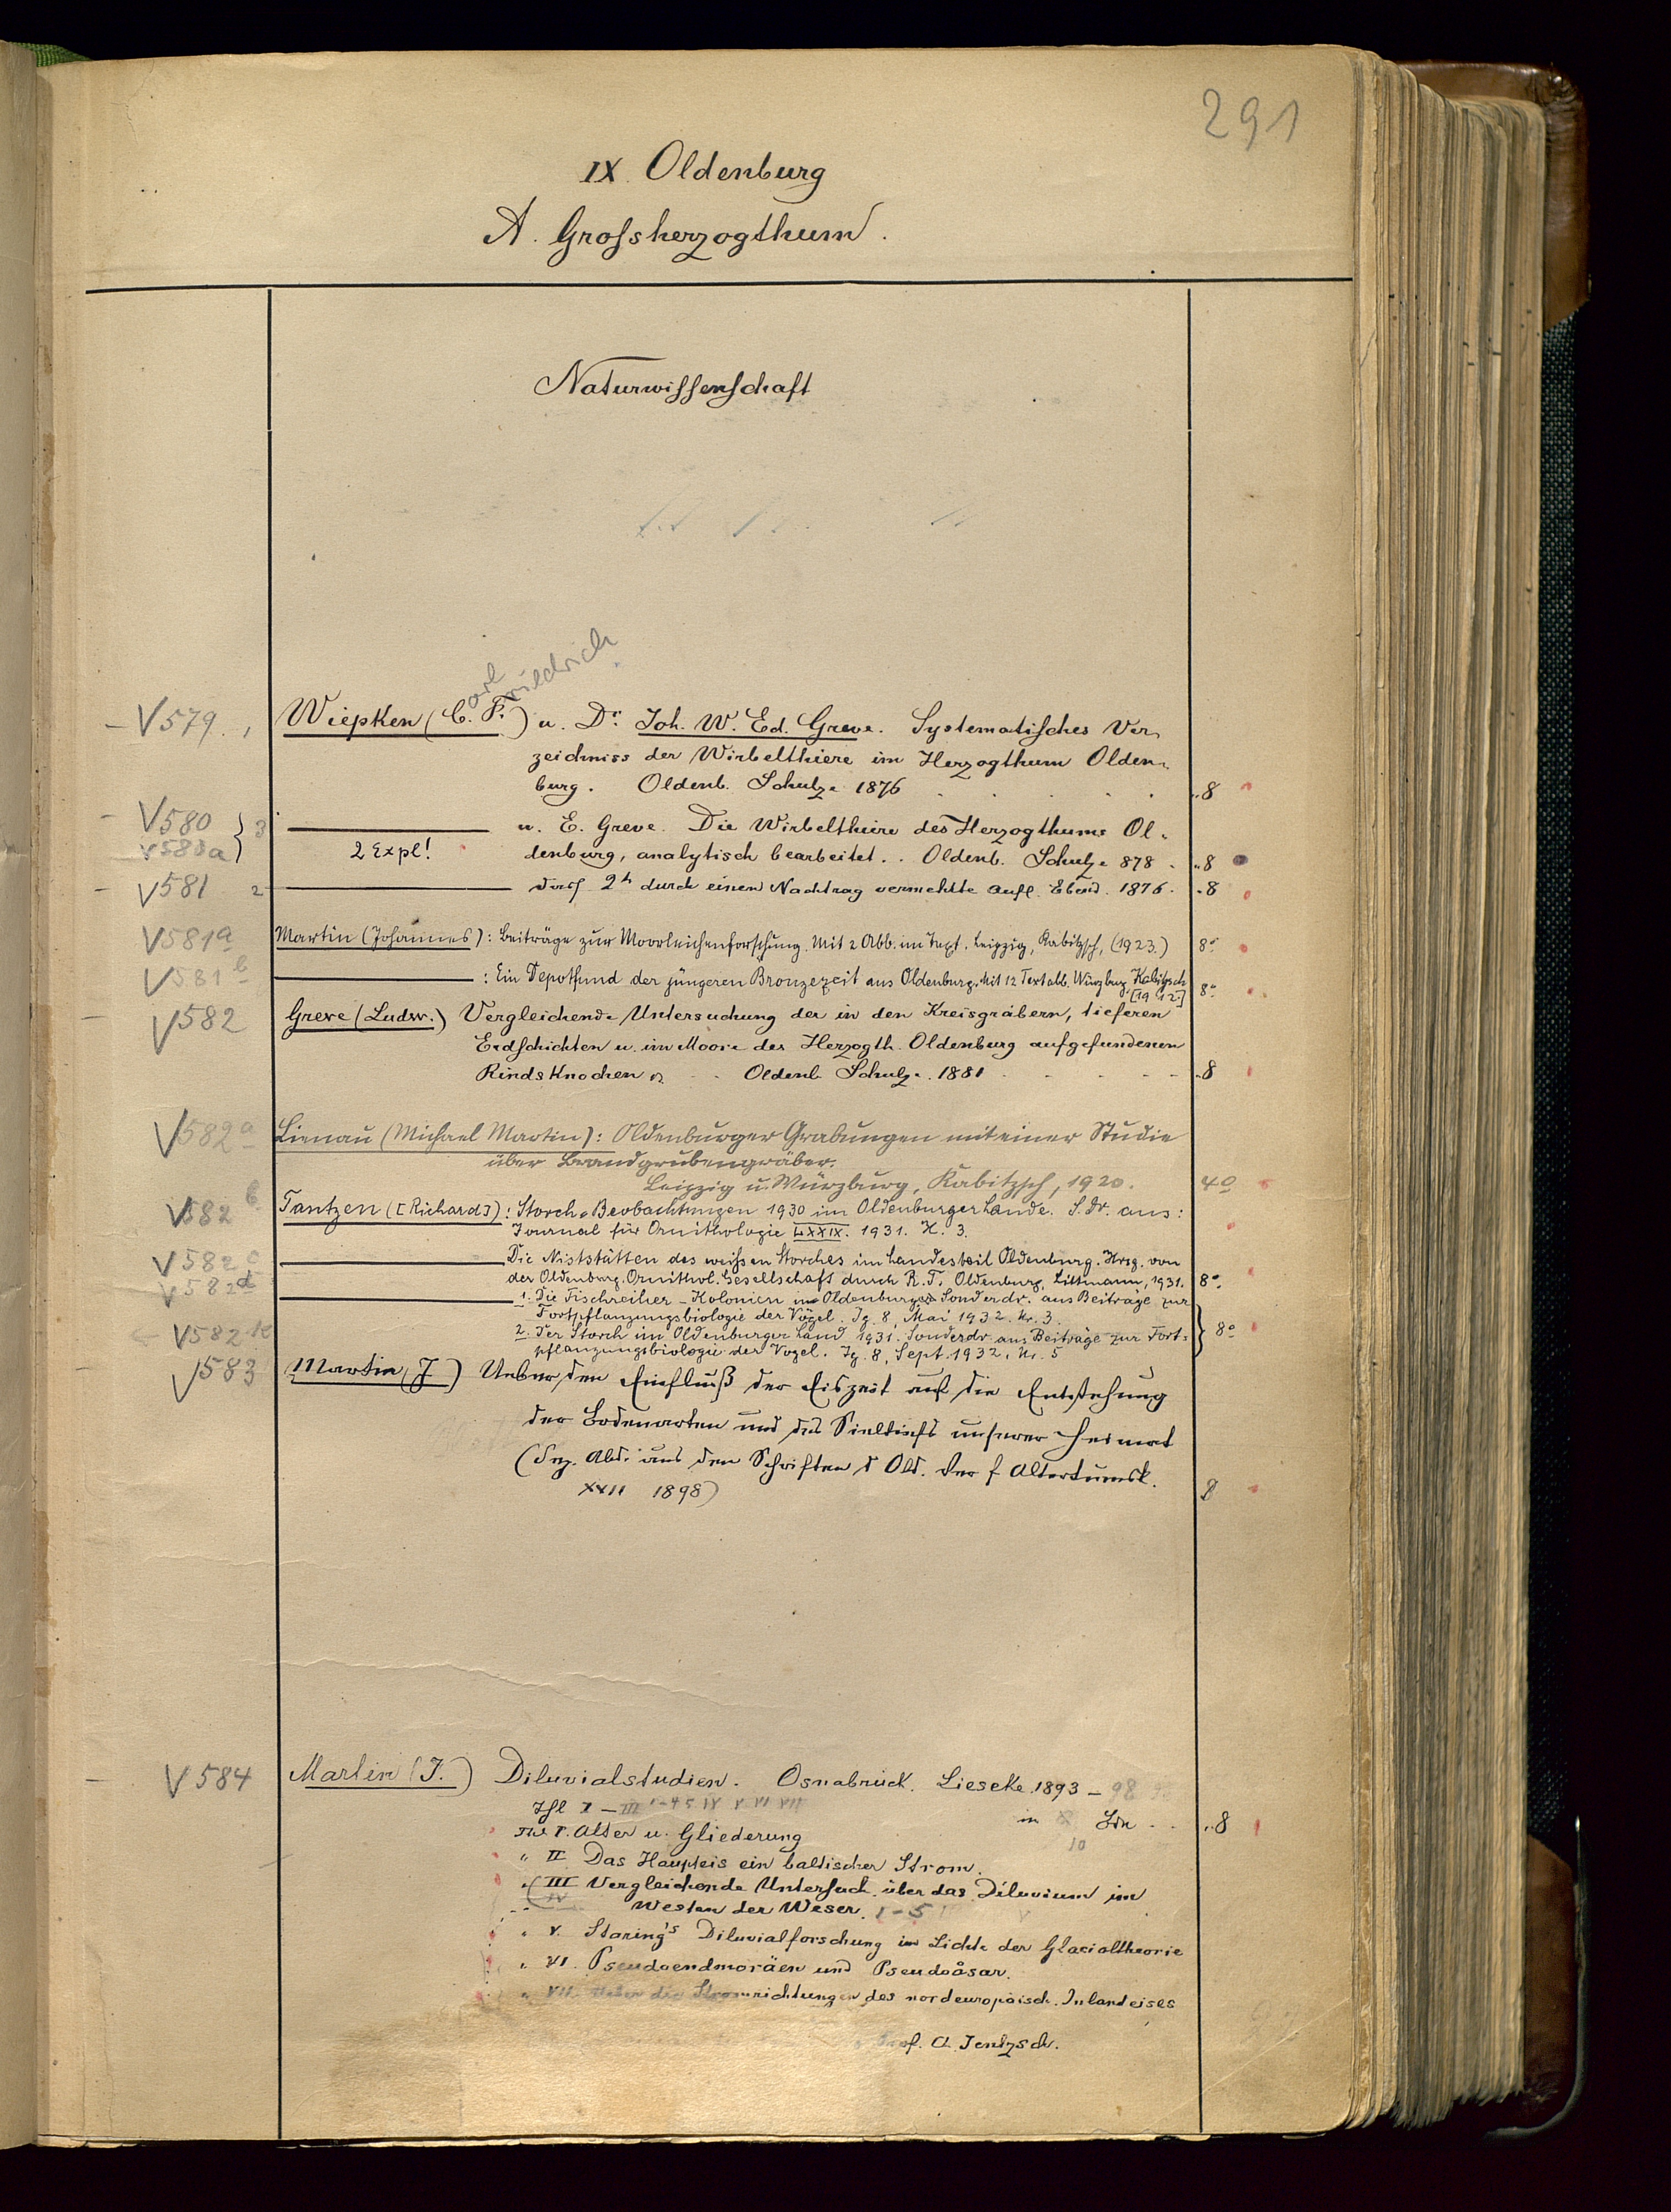 291
IX. Oldenburg
A. Grossherzogthum.
Naturwissenschaft
arl riedrich
V579. 1 Wiepken (C. F.) u. Dr. Joh. W. Ed. Greve. Systematisches Ver-
zeichniss der Wirbelthiere im Herzogthum Olden-
burg. Oldenb. Schulze 1876 8
V580 3 u. E. Greve. Die Wirbelthiere des Herzogthums Ol-
V580a 2 Expl! denburg, analytisch bearbeitet. Oldenb. Schulze 878 8
V581 2 2te durch einen Nachtrag vermehrte Aufl. Ebend. 1876. 8
V581a Martin (Johannes): Beiträge zur Moorleichenforschung. Mit 2 Abb. im Text. Leipzig, Kabitzsch, (1923.) 8°
V581b : Ein Depotfund der jüngeren Bronzezeit aus Oldenburg. Mit 12 Textabb. Würzburg, Kabitzsch
[1912] 8°
V582 Greve (Ludw.) Vergleichende Untersuchung der in den Kreisgräbern, tieferen
Erdschichten u. im Moore des Herzogth. Oldenburg aufgefundenen
Rindsknochen Oldenb. Schulze. 1881 8
V582a Lienau (Michael Martin): Oldenburger Grabungen mit einer Studie
über Brandgrubengräber.
Leipzig u. Würzburg, Kabitzsch, 1920. 4°
V582b Tantzen ([Richard]): Storch-Beobachtungen 1930 im Oldenburger Lande. S. Dr. aus:
Journal für Ornithologie LXXIX. 1931. H. 3.
V582c Die Niststätten des weißen Storches im Landesteil Oldenburg. Hrsg. von
der Oldenburg. Ornithol. Gesellschaft durch R. T. Oldenburg, Littmann, 1931. 8°
V582d 1. Die Fischreiher-Kolonien in Oldenburg. Sonderdr. aus Beiträge zur
Fortpflanzungsbiologie der Vögel. Jg. 8, Mai 1932. Nr. 3.
V582e 2. Der Storch im Oldenburger Land 1931. Sonderdr. aus Beiträge zur Fort- 8°
pflanzungsbiologie der Vögel. Jg. 8, Sept. 1932, Nr. 5
V583 Martin (J) Ueber den Einfluß der Eiszeit auf die Entstehung
der Bodenarten und des unserer Heimat
(Sep. Abdr. aus den Schriften d Old. Ver f Altertumsk.
XXII 1898) 8
V584 Martin (J.) Diluvialstudien. Osnabrück. Liesecke 1893 – 98
Thl I – III 1-4 5 IV V VI VII
in 10 Bdn 8
Thl I. Alter u. Gliederung
" II Das Haupteis ein baltischer Strom.
" III Vergleichende Untersuch. über das Diluvium im
IV Westen der Weser. 1-5
" V. Staring's Diluvialforschung im Lichte der Glacialtheorie
" VI. Pseudoendmoräen und Pseudoåsar.
" VII. Ueber die Stromrichtungen des nordeuropäisch. Inlandeises
Prof. A. Jentzsch.